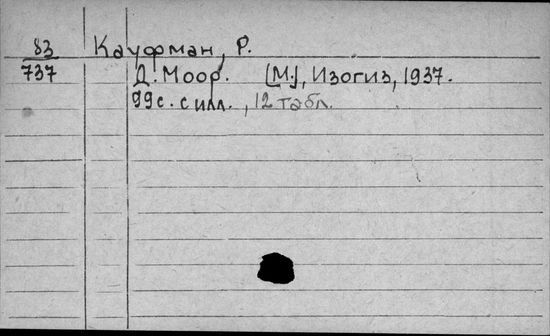 83 Кауфман, Р.
737 Д. Моор. [М.], Изогиз, 1937.
99 с. с илл., 12 табл.